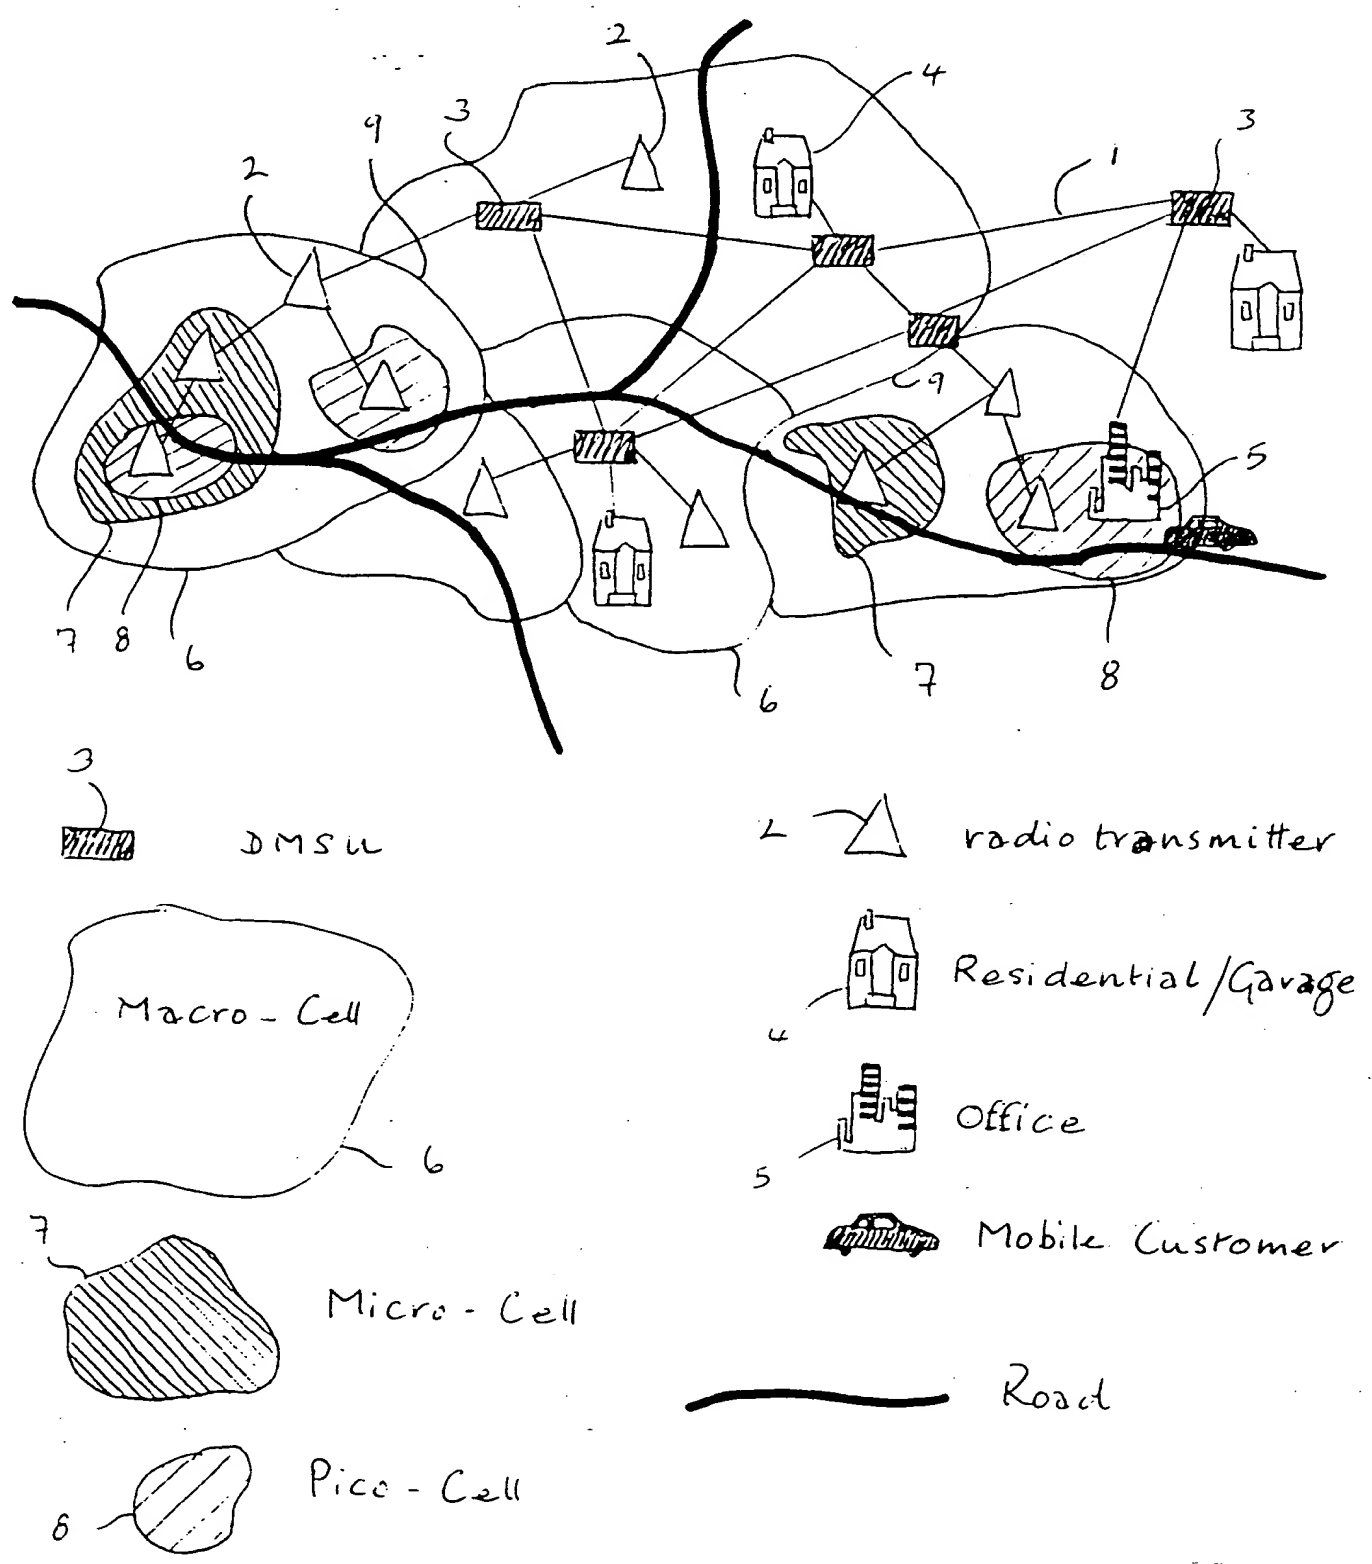 2
4
3
9
3
1
2
9
5
7
8
6
7
8
6
3
DMSU
2
radio transmitter
Macro-Cell
6
Residential/Garage
4
Office
5
7
Mobile Customer
Micro-Cell
Road
Pico-Cell
8